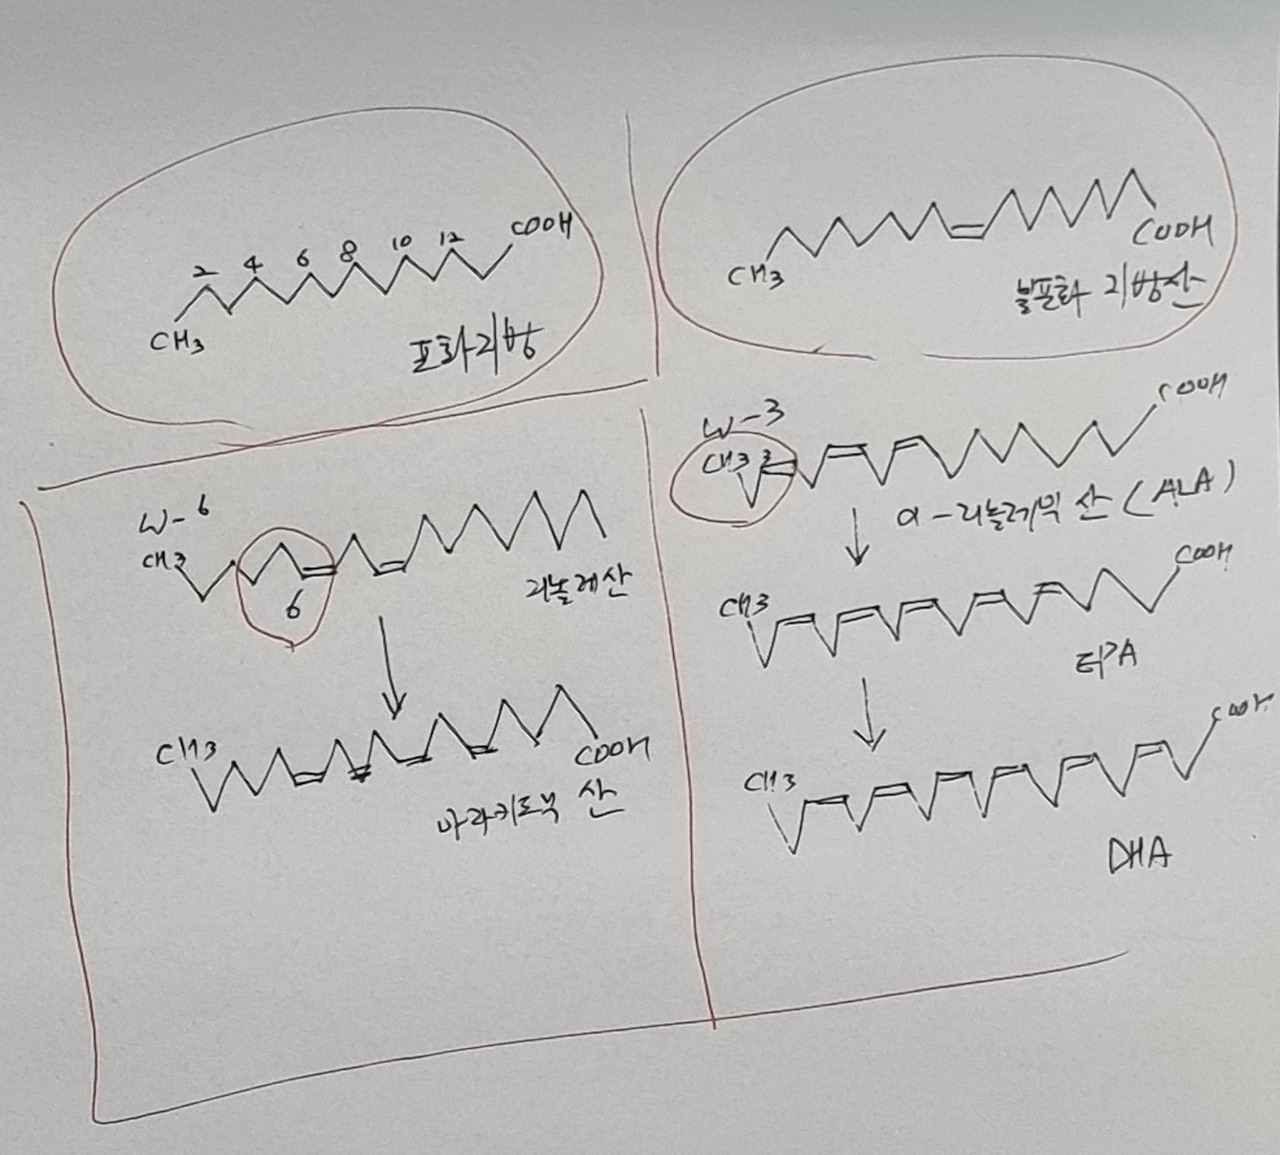 2 4 6 8 10 12 COOH
CH3
포화지방
CH3
COOH
불포화 지방산
W-6
CH3
6
리놀레산
CH3
COOH
아라키도닉 산
W-3
CH3 3
COOH
α-리놀레익 산 (ALA)
CH3
COOH
EPA
CH3
COOH
DHA